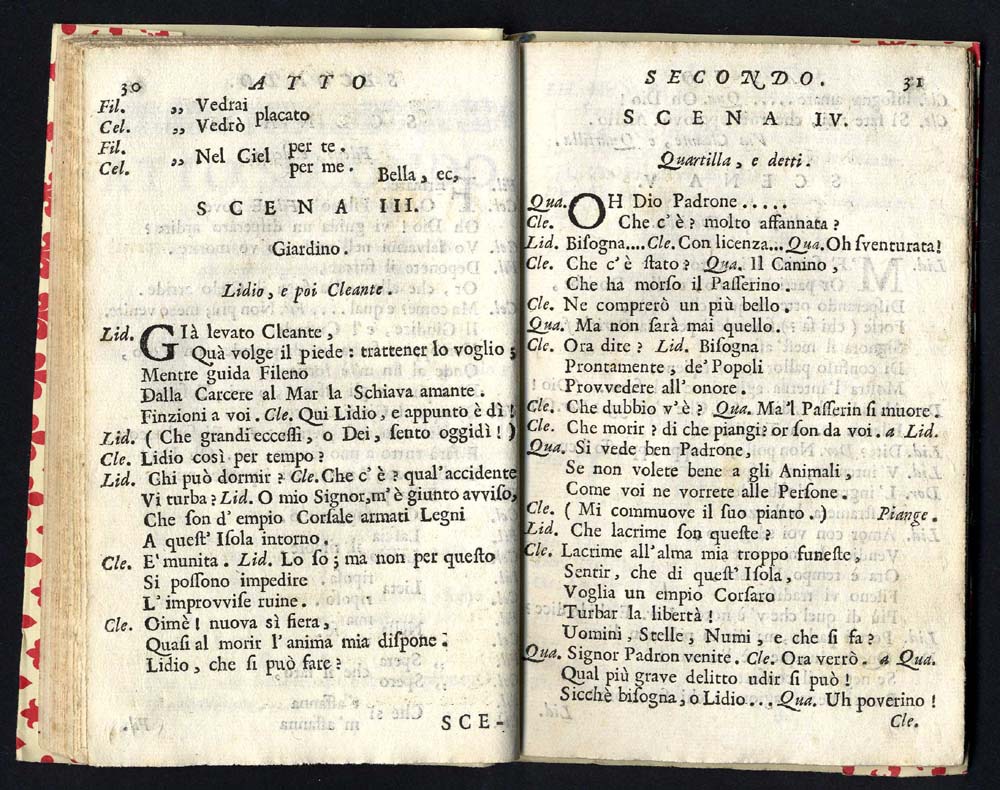 30 ATTO
Fil. ,, Vedrai
placato
Cel. ,, Vedrò
Fil. per te.
,, Nel Ciel
Cel. per me.
Bella, ec,
SCENA III.
Giardino.
Lidio, e poi Cleante.
Lid. GIà levato Cleante,
Quà volge il piede: trattener lo voglio;
Mentre guida Fileno
Dalla Carcere al Mar la Schiava amante.
Finzioni a voi. Cle. Qui Lidio, e appunto è dì!
Lid. (Che grandi eccessi, o Dei, sento oggidì!)
Cle. Lidio così per tempo?
Lid. Ghi può dormir? Cle. Che c'è? qual'accidente
Vi turba? Lid. O mio Signor, m'è giunto avviso,
Che son d'empio Corsale armati Legni
A quest'Isola intorno.
Cle. E' munita. Lid. Lo so; ma non per questo
Si possono impedire
L'improvvise ruine.
Cle. Oimè! nuova sì fiera,
Quasi al morir l'anima mia dispone.
Lidio, che si può fare?
SCE-
SECONDO. 31
SCENA IV.
Quartilla, e detti.
Qua. OH Dio Padrone.....
Cle. Che c'è? molto affannata?
Lid. Bisogna.... Cle. Con licenza... Qua. Oh sventurata!
Cle. Che c'è stato? Qua. Il Canino,
Che ha morso il Passerino.
Cle. Ne comprerò un più bello.
Qua. Ma non sarà mai quello.
Cle. Ora dite? Lid. Bisogna
Prontamente, de' Popoli
Provvedere all'onore.
Cle. Che dubbio v'è? Qua. Ma'l Passerin si muore.
Cle. Che morire? di che piangi? or son da voi. a Lid.
Qua. Si vede ben Padrone,
Se non volete bene a gli Animali,
Come voi ne vorrete alle Persone.
Cle. (Mi commuove il suo pianto.) Piange.
Lid. Che lacrime son queste?
Cle. Lacrime all'alma mia troppo funeste,
Sentir, che di quest'Isola,
Voglia un empio Corsaro
Turbar la libertà!
Uomini, Stelle, Numi, e che si fa?
Qua. Signor Padron venite. Cle. Ora verrò. a Qua.
Qual più grave delitto udir si può!
Sicchè bisogna, o Lidio... Qua. Uh poverino!
Cle.